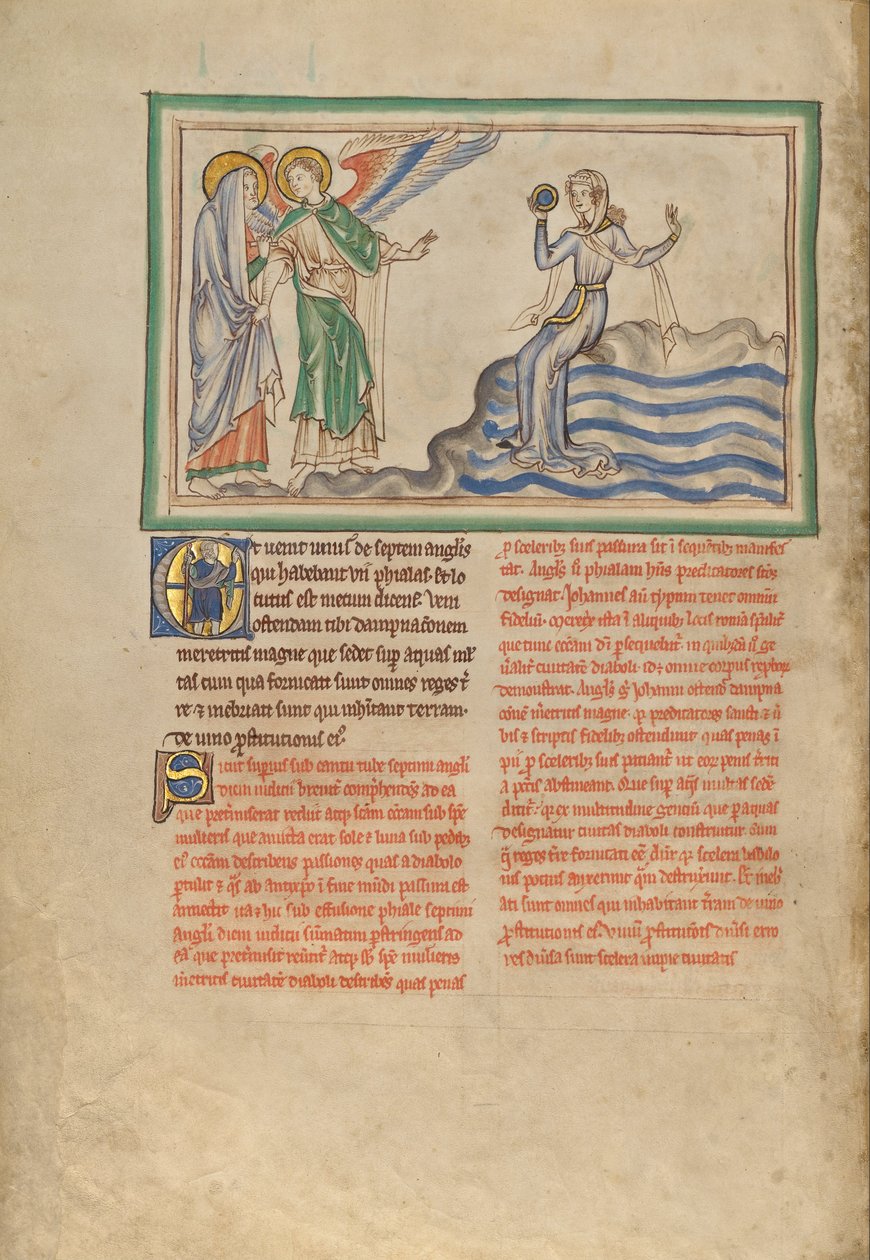 Et venit unus de septem anglis
qui habebant vii phialas. et lo
cutus est mecum dicens. veni
ostendam tibi dampnationem
meretricis magne que sedet sup aquas mul
tas cum qua fornicati sunt omnes reges ter
re ⁊ inebriati sunt qui inhitant terram.
de vino prostitutionis ei9.
Sicut superius sub cantu tube septimi angli
diem iudicii breviter comprehendens ad ea
que pretermiserat rediit atque scam ecciam sub specie
mulieris que amicta erat sole ⁊ luna sub pedib3
ei9 ecciam describens passiones quas a diabolo
pertulit ⁊ quas ab antixpo i fine mudi passura est
ita ⁊ hic sub effusione phiale septimi
angli diem iudicii summatim perstringens ad
ea que pretermisit atque sub specie mulieris
meretricis civitatem diaboli describens quas penas
pro sceleribus suis passura sit i sequentibus manifes
tat. Anglus phialam habens predicatores sctos
designat. Johannes autem typum tenet omnium
fidelium. meretrix ista i aliquibus locis romam
que tunc ecciam dei persequebatur. in quibusdam ge
neraliter civitatem diaboli. id est omne corpus reproborum
demonstrat. Anglus ergo Johanni ostendit dampna
tionem meretricis magne. quia predicatores sancti ⁊ ver
bis ⁊ scriptis fidelibus ostendunt quas penas i
pii pro sceleribus suis patiantur ut eorum penis territi
a peccatis abstineant. Que super aquas multas sedere
dicitur. quia ex multitudine gentium que per aquas
designatur civitas diaboli construitur. Cum
qua reges terre fornicati esse dicuntur quia scelera babilo
nis potius auxerunt quam destruxerunt. Et inebri
ati sunt omnes qui inhabitant terram de vino
prostitutionis ei9. Vinum prostitutionis diversi erro
res diversa sunt scelera impie civitatis